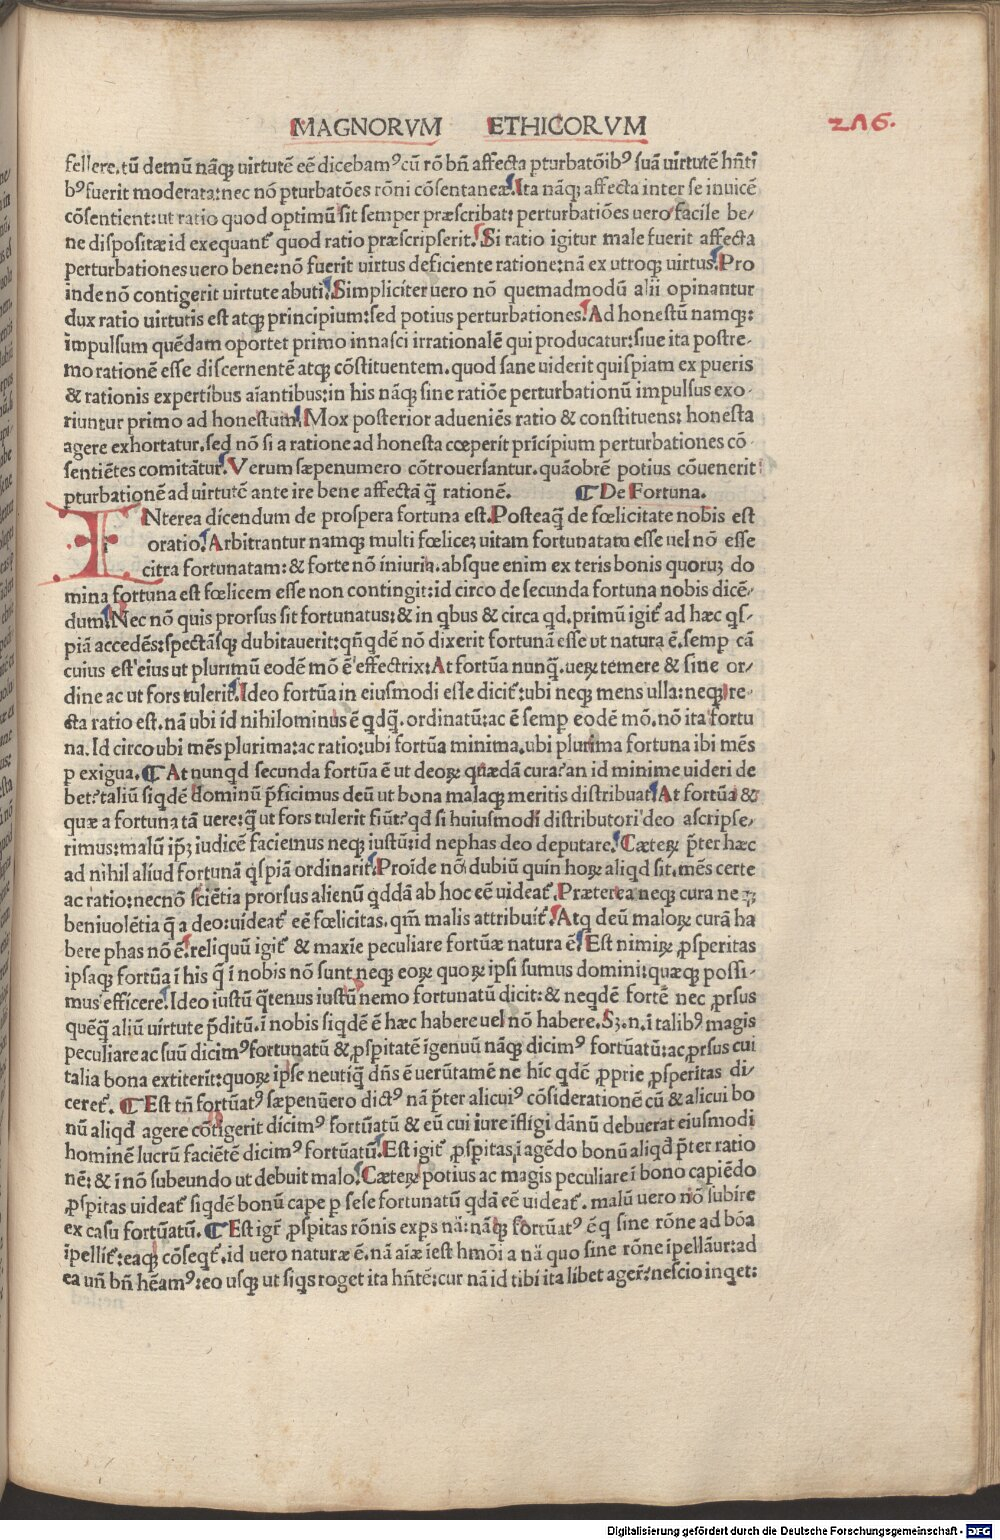 MAGNORVM ETHICORVM
216.
fellere. tū demū nāq; uirtutē eē dicebam⁹ cū rō bñ affecta pturbatōib⁹ suā uirtutē hñti
b⁹ fuerit moderata: nec nō pturbatōes rōni cōsentaneæ. Ita nāq; affecta inter se inuicē
cōsentient: ut ratio quod optimū sit semper præscribat: perturbatiōes uero facile be⸗
ne dispositæ id exequant̄ quod ratio præscripserit. Si ratio igitur male fuerit affecta
perturbationes uero bene: nō fuerit uirtus deficiente ratione: nā ex utroq; uirtus. Pro
inde nō contigerit uirtute abuti. Simpliciter uero nō quemadmodū alii opinantur
dux ratio uirtutis est atq; principium: sed potius perturbationes. Ad honestū namq;:
impulsum quēdam oportet primo innasci irrationalē qui producatur: siue ita postre⸗
mo rationē esse discernentē atq; cōstituentem. quod sane uiderit quispiam ex pueris
& rationis expertibus aīantibus: in his nāq; sine ratiōe perturbationū impulsus exo⸗
riuntur primo ad honestum. Mox posterior adueniēs ratio & constituens: honesta
agere exhortatur. sed nō si a ratione ad honesta cœperit prīcipium perturbationes cō⸗
sentiētes comitātur. Verum sæpenumero cōtrouersantur. quāobrē potius cōuenerit
pturbationē ad uirtutē ante ire bene affectā q̄ rationē. ¶ De Fortuna.
INterea dicendum de prospera fortuna est. Posteaq̄ de fœlicitate nobis est
oratio. Arbitrantur namq; multi fœlicez uitam fortunatam esse uel nō esse
citra fortunatam: & forte nō iniuria. absque enim exteris bonis quoruz do
mina fortuna est fœlicem esse non contingit: id circo de secunda fortuna nobis dicē⸗
dum. Nec nō quis prorsus sit fortunatus: & in qbus & circa qd. primū igit̄ ad hæc qs⸗
piā accedēs: spectāsq; dubitauerit: qñqdē nō dixerit fortunā esse ut natura ē. semp cā
cuius est eius ut plurimū eodē mō ē effectrix: At fortūa nunq̄. ueꝝ temere & sine or⸗
dine ac ut fors tulerit. Ideo fortūa in eiusmodi esse dicit̄: ubi neq; mens ulla: neq; re⸗
cta ratio est. nā ubi id nihilominus ē qdq̄. ordinatū: ac ē semp eodē mō. nō ita fortu
na. Id circo ubi mēs plurima: ac ratio: ubi fortūa minima. ubi plurima fortuna ibi mēs
p exigua. ¶ At nunqd secunda fortūa ē ut deoꝝ quædā cura? an id minime uideri de
bet? taliū siqdē dominū p̄ficimus deū ut bona malaq; meritis distribuat. At fortūa &
quæ a fortuna tā uere: q̄ ut fors tulerit fiūt? qd si huiusmodi distributori deo ascripse⸗
rimus: malū ip̄z iudicē faciemus neq; iustū: id nephas deo deputare. Cæteꝝ p̄ter hæc
ad nihil aliud fortunā qspiā ordinarit. Proide nō dubiū quin hoꝝ aliqd sit. mēs certe
ac ratio: necnō sciētia prorsus alienū qddā ab hoc eē uideat̄. Præterea neq; cura neqz
beniuolētia q̄ a deo: uideat̄ eē fœlicitas. qm̄ malis attribuit̄. Atq deū maloꝝ curā ha
bere phas nō ē. reliquū igit̄ & maxīe peculiare fortūæ natura ē. Est nimiꝝ ꝓsperitas
ipsaq; fortūa ī his q̄ ī nobis nō sunt neq; eoꝝ quoꝝ ipsi sumus domini: quæq; possi⸗
mus efficere. Ideo iustū q̄tenus iustū nemo fortunatū dicit: & neqdē fortē nec ꝓrsus
quēq̄ aliū uirtute p̄ditū. ī nobis siqdē ē hæc habere uel nō habere. Sz. n. ī talib⁹ magis
peculiare ac suū dicim⁹ fortunatū & ꝓspitatē īgenuū nāq; dicim⁹ fortūatū: ac ꝓrsus cui
talia bona extiterīt: quoꝝ ipse neutiq̄ dñs ē uerūtamē ne hīc qdē ꝓprie ꝓsperitas di⸗
ceret̄. ¶ Est tñ fortūat⁹ sæpenūero dict⁹ nā p̄ter alicui⁹ cōsiderationē cū & alicui bo
nū aliqd agere cōtigerit dicim⁹ fortūatū & eū cui iure īfligi dānū debuerat eiusmodi
hominē lucrū faciētē dicim⁹ fortūatū. Est igit̄ ꝓspitas, ī agēdo bonū aliqd p̄ter ratio
nē: & ī nō subeundo ut debuit malo. Cæteꝝ potius ac magis peculiare ī bono capiēdo
ꝓspitas uideat̄ siqdē bonū cape p sese fortunatū qdā eē uideat̄. malū uero nō subire
ex casu fortūatū. ¶ Est igr̄ ꝓspitas rōnis exps nā: nāq; fortūat⁹ ē q sine rōne ad bōa
īpellit̄: eaq; cōseqt̄. id uero naturæ ē. nā aīæ īest hmōi a nā quo sine rōne īpellāur: ad
ea un̄ bñ hēam⁹: eo usq; ut siqs roget ita hñtē: cur nā id tibi ita libet ager̄? nescio inqet:
Digitalisierung gefördert durch die Deutsche Forschungsgemeinschaft - DFG